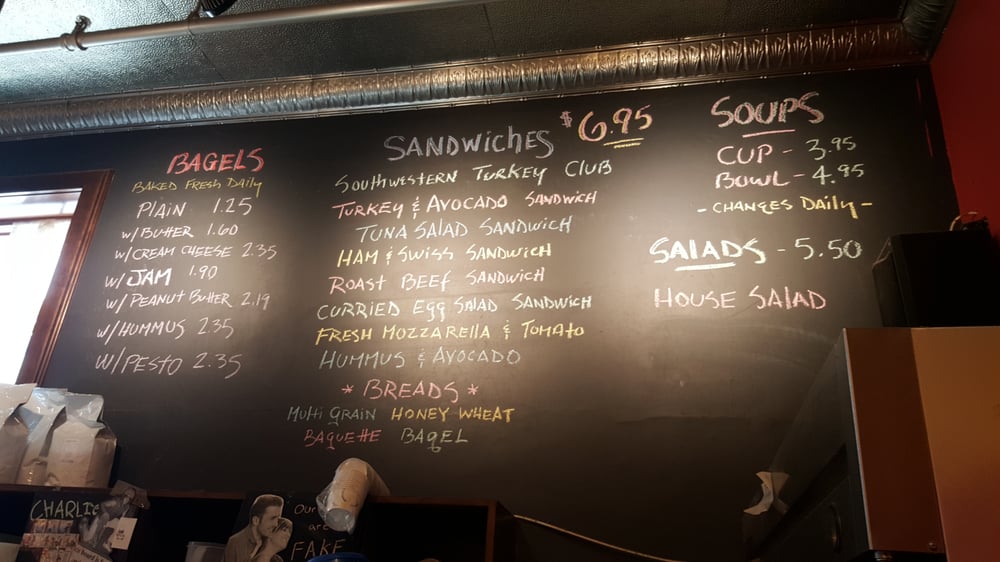 BAGELS
BAKED FRESH DAILY
PLAIN 1.25
W/BUTTER 1.60
W/CREAM CHEESE 2.35
W/JAM 1.90
W/PEANUT BUTTER 2.19
W/HUMMUS 2.35
W/PESTO 2.35
SANDWICHES $6.95
SOUTHWESTERN TURKEY CLUB
TURKEY & AVOCADO SANDWICH
TUNA SALAD SANDWICH
HAM & SWISS SANDWICH
ROAST BEEF SANDWICH
CURRIED EGG SALAD SANDWICH
FRESH MOZZARELLA & TOMATO
HUMMUS & AVOCADO
* BREADS *
MULTI GRAIN HONEY WHEAT
BAGUETTE BAGEL
SOUPS
CUP - 3.95
BOWL - 4.95
- CHANGES DAILY -
SALADS - 5.50
HOUSE SALAD
CHARLIE
FAKE